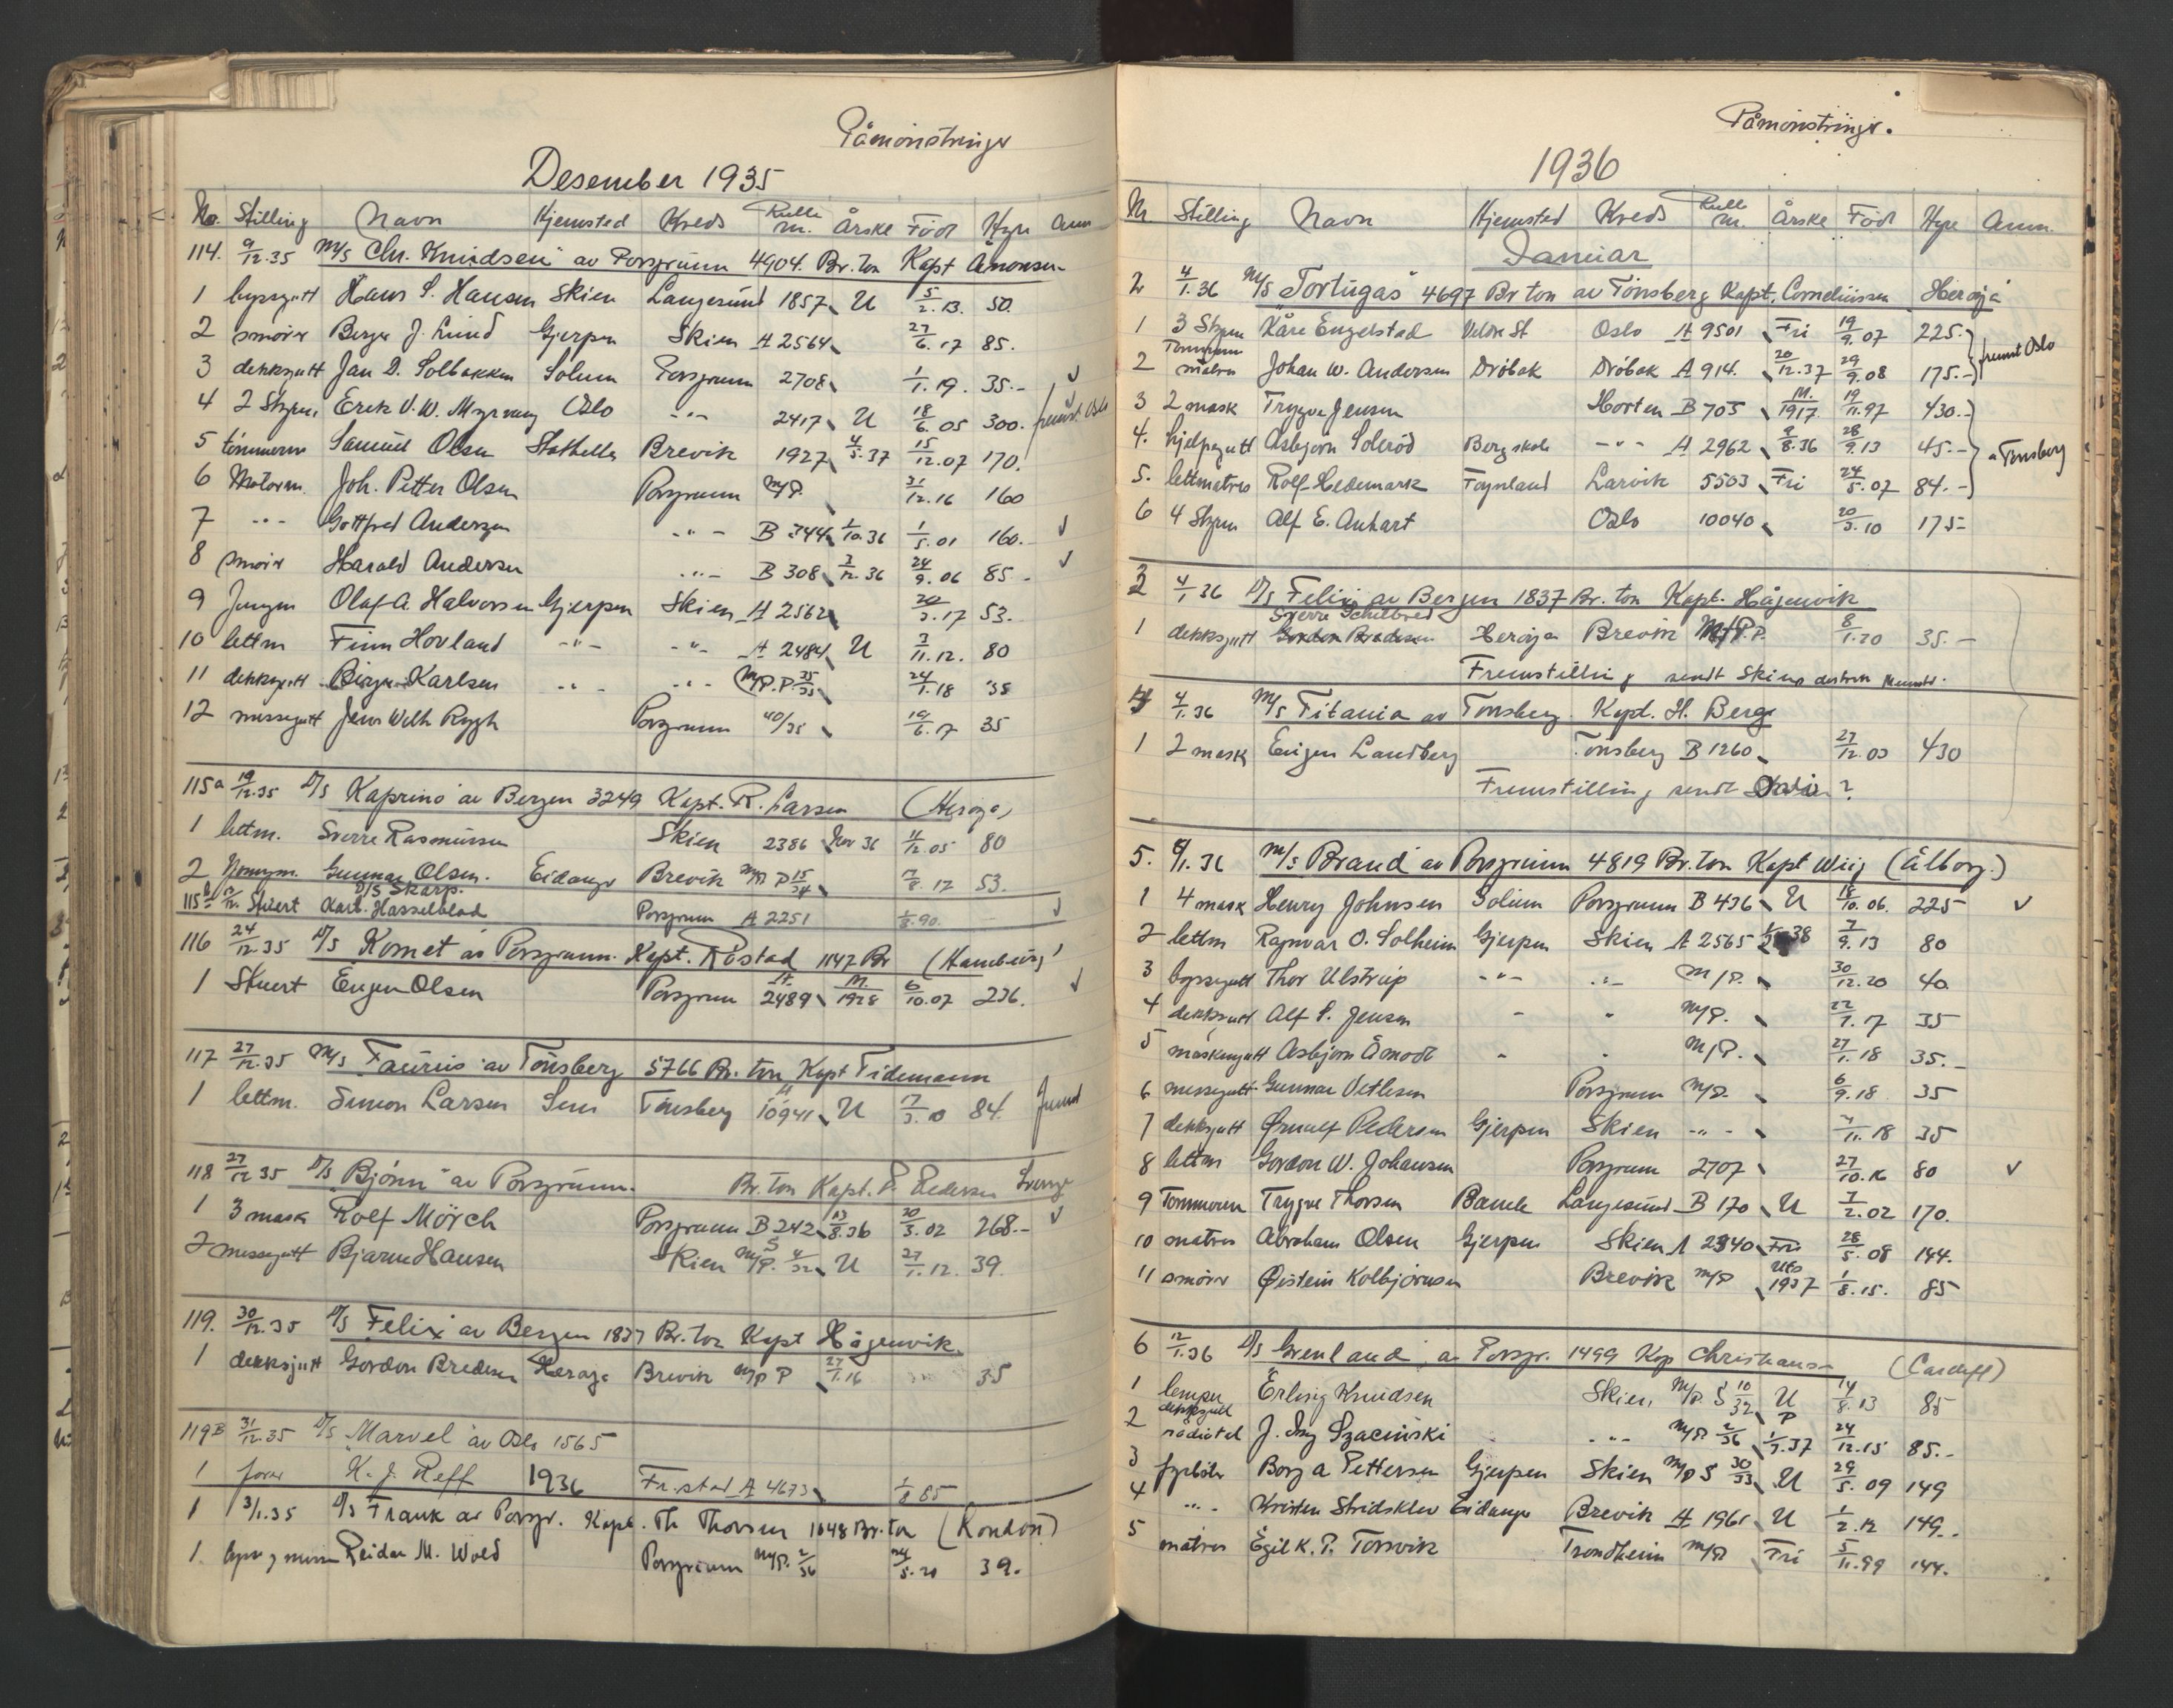 Påmønstringer
Desember 1935
No. Stilling Navn Hjemsted Kreds Rulle nr. Årskl Född Hyre Anm
114. 9/12.35 M/S Chr. Knudsen av Porsgrunn 4904. Br. ton Kapt Amonsen
1 byssgutt Hans S. Hansen Skien Langesund 1857 U 5/2.13. 50.
2 smører Berger J. Lund Gjerpen Skien A 2564 27/6.17 85.
3 dekksgutt Jan D. Solbakken Solum Porsgrunn 2708 1/1.19. 35.-
4 2 Styrm. Erik V. W. Myrvang Oslo -"- 2417 U 18/6.05 300. fremst. Oslo
5 tömmerm Samuel Olsen Stathelle Brevik 1927 4/5.37 15/12.07 170.
6 Motorm. Joh. Petter Olsen Porsgrunn M/P. 31/12.16 160
7 -"- Gottfred Andersen -"- B 344 1/10.36 1/5.01 160.-
8 smører Harald Andersen -"- B 308 3/12.36 24/9.06 85.-
9 Jungm Olaf A Halvorsen Gjerpen Skien A 2562 20/3.17 53.-
10 lettm Finn Hovland -"- -"- A 2484 U 3/11.12. 80
11 dekksgutt Birger Karlsen -"- -"- M/P. P 35/33 24/1.18 35
12 messegutt Jens Wilh Rygh Porsgrunn 40/35 19/6.17 35
115a 19/12.35 D/S Kaprino av Bergen 3249 Kapt. R. Larsen (Herøya)
1 lettm. Sverre Rasmussen Skien 2386 Nov 36 11/12.05 80
2 Gunnar Olsen. Eidanger Brevik M/P P 15/34 17/8.17 53.
D/S Skarp.
115b Stuert Karl. Hasselblad Porsgrunn A 2251 1/8.90.
116 24/12.35 D/S Komet av Porsgrunn. Kapt. Röstad 1147 Br (Hamburg)
1 Stuert Eugen Olsen Porsgrunn A 2489 M 1928 6/10.07 236.
117 27/12.35 M/S Taurus av Tönsberg 5766 Br. ton Kapt Tidemann
1 lettm. Simon Larsen Sem Tönsberg A 10941 U 17/3.10 84.
118 27/12 35 D/S Björn av Porsgrunn. Br. ton Kapt. P. Pedersen Sverge
1 3 mask Rolf Mörch Porsgrunn B 242 13/8.36 20/3.02 268.-
2 messegutt Bjarne Hansen Skien M/P. S 4/32 U 27/1.12. 39.
119. 30/12.35 D/S Felix av Bergen 1837 Br. ton Kapt Hågenvik.
1 dekksgutt Gordon Bredesen Herøya Brevik M/P P 27/1.16 35
119B 31/12.35 D/S Marvel av Oslo 1565
1 K. J. Reff Fr.stad A 4673 1/8 85
1936
1 3/1.35 D/S Frank av Porsgr. Kapt. Th Thorsen 1048 Br. ton (London)
1. Reidar M. Wold Porsgrunn M/P. 2/36 24/5.20 39.
Påmønstringer.
1936
Nr Stilling Navn Hjemsted Kreds Rulle nr. Årskl Född Hyre Anm.
Januar
2 4/1.36 M/S Tortugas 4697 Br ton av Tönsberg Kapt. Corneliussen Herøya
1 3 Styrm Kåre Engelstad Oslo A 9501 Fri 19/9.07 225.-
2 Tömmerm matros Johan W. Andersen Dröbak Dröbak A 914. 20/12.37 29/9.08 175.- fremst Oslo
3 2 mask Trygve Jensen Horten B 705 M. 1917 19/11.97 430.-
4. hjelpegutt Asbjørn Soleröd Bergskole -"- A 2962 9/8.36 28/9.13 45.- " Tönsberg
5. lettmatros Rolf Hedemark Föynland Larvik 5503 Fri 24/5.07 84.-
6 4 Styrm Alf E. Anhart Oslo 10040 20/3.10 175-
3 4/1.36 D/S Felix av Bergen 1837 Br. ton Kapt. Hågenvik
Sverre Schilbred
1 dekksgutt Gordon Bredesen Herøya Brevik M/P. P. 8/1.20 35.-
Fremstilling sendt Skien
4 4/1.36 M/S Titania av Tönsberg. Kapt. H. Berg
1 2 mask Eugen Landberg Tönsberg B 1260 27/12.03 430
Fremstilling sendt
5. 8/1.36 M/S Brand av Porsgrunn 4819 Br. ton Kapt Wiig (Ålborg.)
1 4 mask Henry Johnsen Solum Porsgrunn B 436 U 18/10.06. 225
2 lettm Ragnvar O. Solheim Gjerpen Skien A 2565 38 7/9.13 80
3 byssegutt Thor Ulstrup -"- -"- M/P. 30/12.20 40.
4 dekksgutt Alf S. Jensen - " M/P. 22/7.17 35
5 maskingutt Asbjørn Åmodt - - M/P. 27/1.18 35.-
6 messegutt Gunnar Vetlesen Porsgrunn M/P. 6/9.18 35
7 dekksgutt Ørnulf Pedersen Gjerpen Skien -"- 4/11.18 35
8 lettm Gordon W. Johansen Porsgrunn 2707 27/10.16 80
9 Tömmerm Trygve Thorsen Bamle Langesund B 170 U 7/2.02 170.
10 matros Abraham Olsen Gjerpen Skien A 2340 Fri 28/5.08 144.
11 smører Øistein Kolbjörnsen Brevik M/P Uts 1937 1/8.15. 85
6 12/1.36 D/S Grenland av Porsgr. 1499 Kap Christiansen (Cardiff)
1 lemper Erling Knudsen Skien M/P. S 10/32 U 14/8.13 85
2 dekksgutt radiotel J. Szacinski -"- M/P. 2/36 P 1/7.37 24/12.15 85.-
3 fyrböter Borg A Pettersen Gjerpen Skien M/P S 30/33 U 29/5.09 149
4 -"- Kristen Stridsklev Eidanger Brevik A 1961 U 1/2.12 149.-
5 matros Egil K. P. Torsvik Trondheim M/P Fri 5/11.99 144.